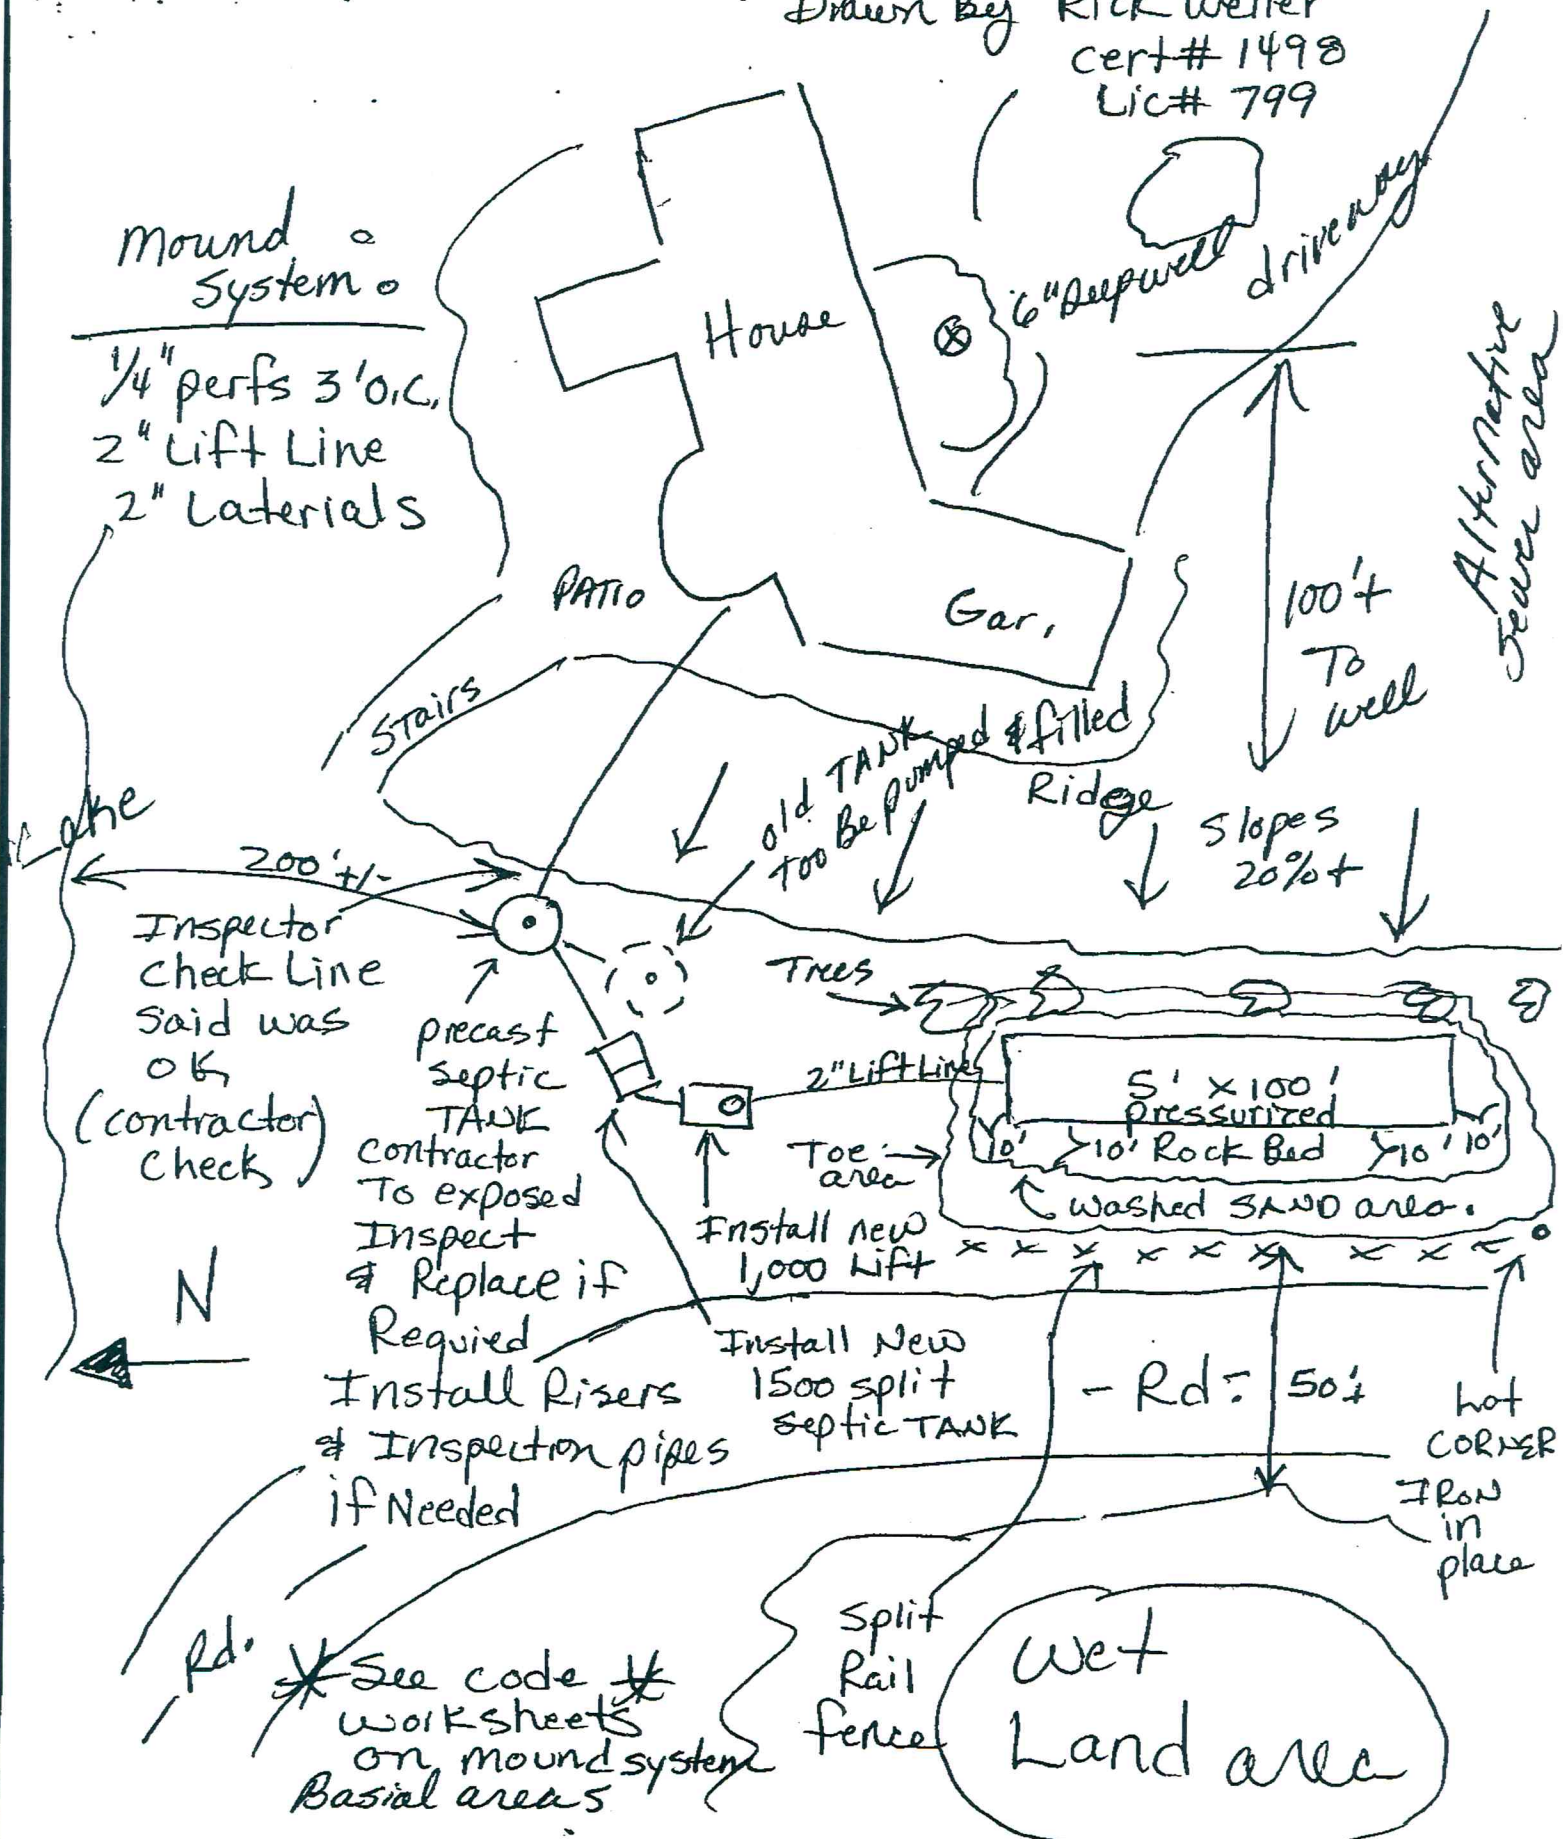 Drawn By Rick Weller
Cert# 1498
Lic# 799
Mound
System
1/4" perfs 3' O.C.
2" Lift Line
2" Laterials
House
6" Deepwell
driveway
Alternative
Sewer area
100'+
To
well
PATIO
Gar.
Stairs
old TANK
too Be pumped & filled
Ridge
Slopes
20%+
Lake
200'+/-
Inspector
check Line
Said was
OK
(contractor)
check
precast
Septic
TANK
contractor
To exposed
Inspect
& Replace if
Requied
Install Risers
& Inspection pipes
if Needed
Trees
2" Lift Line
5' x 100'
pressurized
10' 10' Rock Bed 10' 10'
Toe
area
washed SAND area.
Install new
1,000 Lift
Install New
1500 split
septic TANK
N
- Rd -
50'±
Lot
CORNER
IRON
in
place
Rd.
See code
worksheets
on mound system
Basial areas
Split
Rail
fence
Wet
Land area